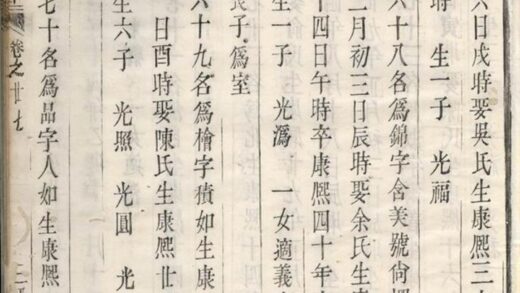 六日戌時娶吳氏生康熙三
時 生一子 光福
六十八名爲錦字含美號尙
二月初三日辰時娶余氏生
十四日午時卒康熙四十年
生一子 光潙 一女適義
長子爲室
六十九名爲檜字積如生康
日酉時娶陳氏生康熙廿
生六子 光照 光圓 光
七十名爲品字人如生康熙
卷之廿七